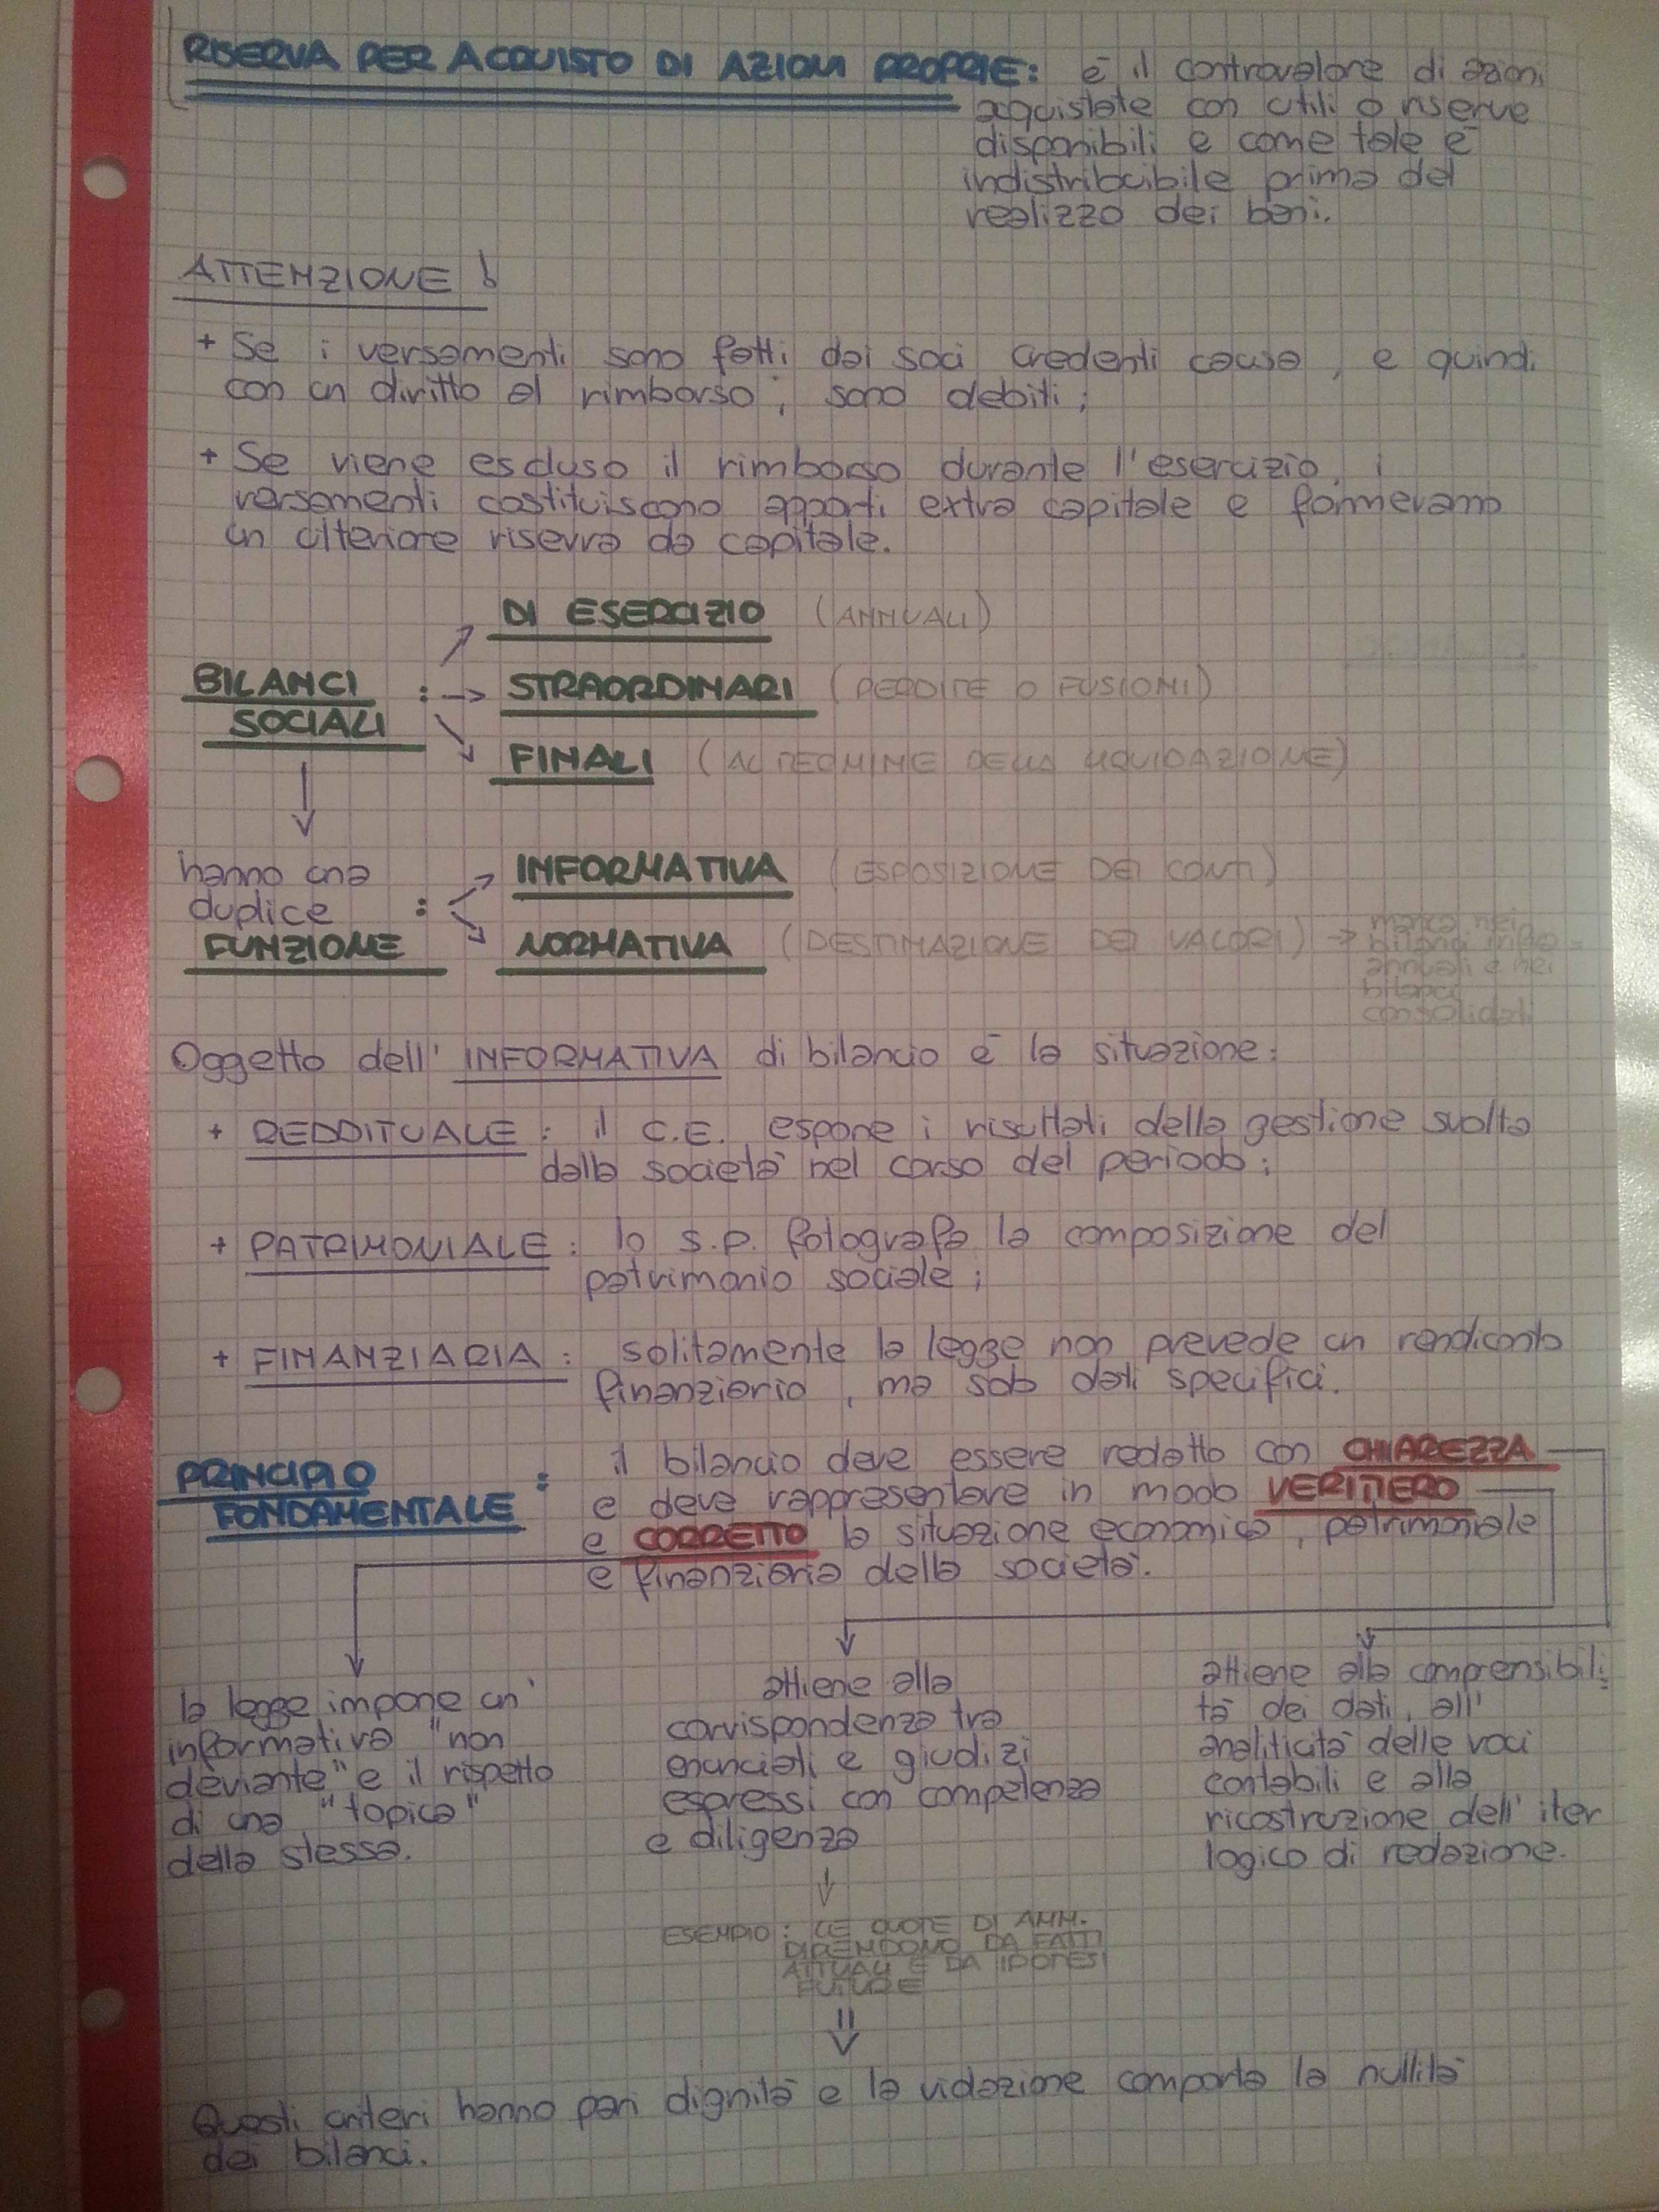 RISERVA PER ACQUISTO DI AZIONI PROPRIE: è il controvalore di azioni
acquistate con utili o riserve
disponibili e come tale è
indistribuibile prima del
realizzo dei beni.
ATTENZIONE !
+ Se i versamenti sono fatti dai soci credenti causa, e quindi
con un diritto al rimborso, sono debiti;
+ Se viene escluso il rimborso durante l'esercizio, i
versamenti costituiscono apporti extra capitale e formeranno
un ulteriore riserva da capitale.
DI ESERCIZIO (ANNUALI)
BILANCI : -> STRAORDINARI (PERDITE O FUSIONI)
SOCIALI
FINALI (AL TERMINE DELLA LIQUIDAZIONE)
hanno una INFORMATIVA (ESPOSIZIONE DEI CONTI)
duplice :
FUNZIONE NORMATIVA (DESTINAZIONE DEI VALORI) → manca nei
bilanci infra-
annuali e nei
bilanci
consolidati
Oggetto dell'INFORMATIVA di bilancio è la situazione:
+ REDDITUALE : il C.E. espone i risultati della gestione svolta
dalla società nel corso del periodo;
+ PATRIMONIALE : lo s.p. fotografa la composizione del
patrimonio sociale;
+ FINANZIARIA : solitamente la legge non prevede un rendiconto
finanziario, ma solo dati specifici.
PRINCIPIO : il bilancio deve essere redatto con CHIAREZZA
FONDAMENTALE e deve rappresentare in modo VERITIERO
e CORRETTO la situazione economica, patrimoniale
e finanziaria della società.
la legge impone un'
informativa "non
deviante" e il rispetto
di una "topica"
della stessa.
attiene alla
corrispondenza tra
enunciati e giudizi
espressi con competenza
e diligenza
attiene alla comprensibili
tà dei dati, all'
analiticità delle voci
contabili e alla
ricostruzione dell'iter
logico di redazione.
ESEMPIO : LE QUOTE DI AMM.
DIPENDONO DA FATTI
ATTUALI E DA IPOTESI
FUTURE
Questi criteri hanno pari dignità e la violazione comporta la nullità
dei bilanci.